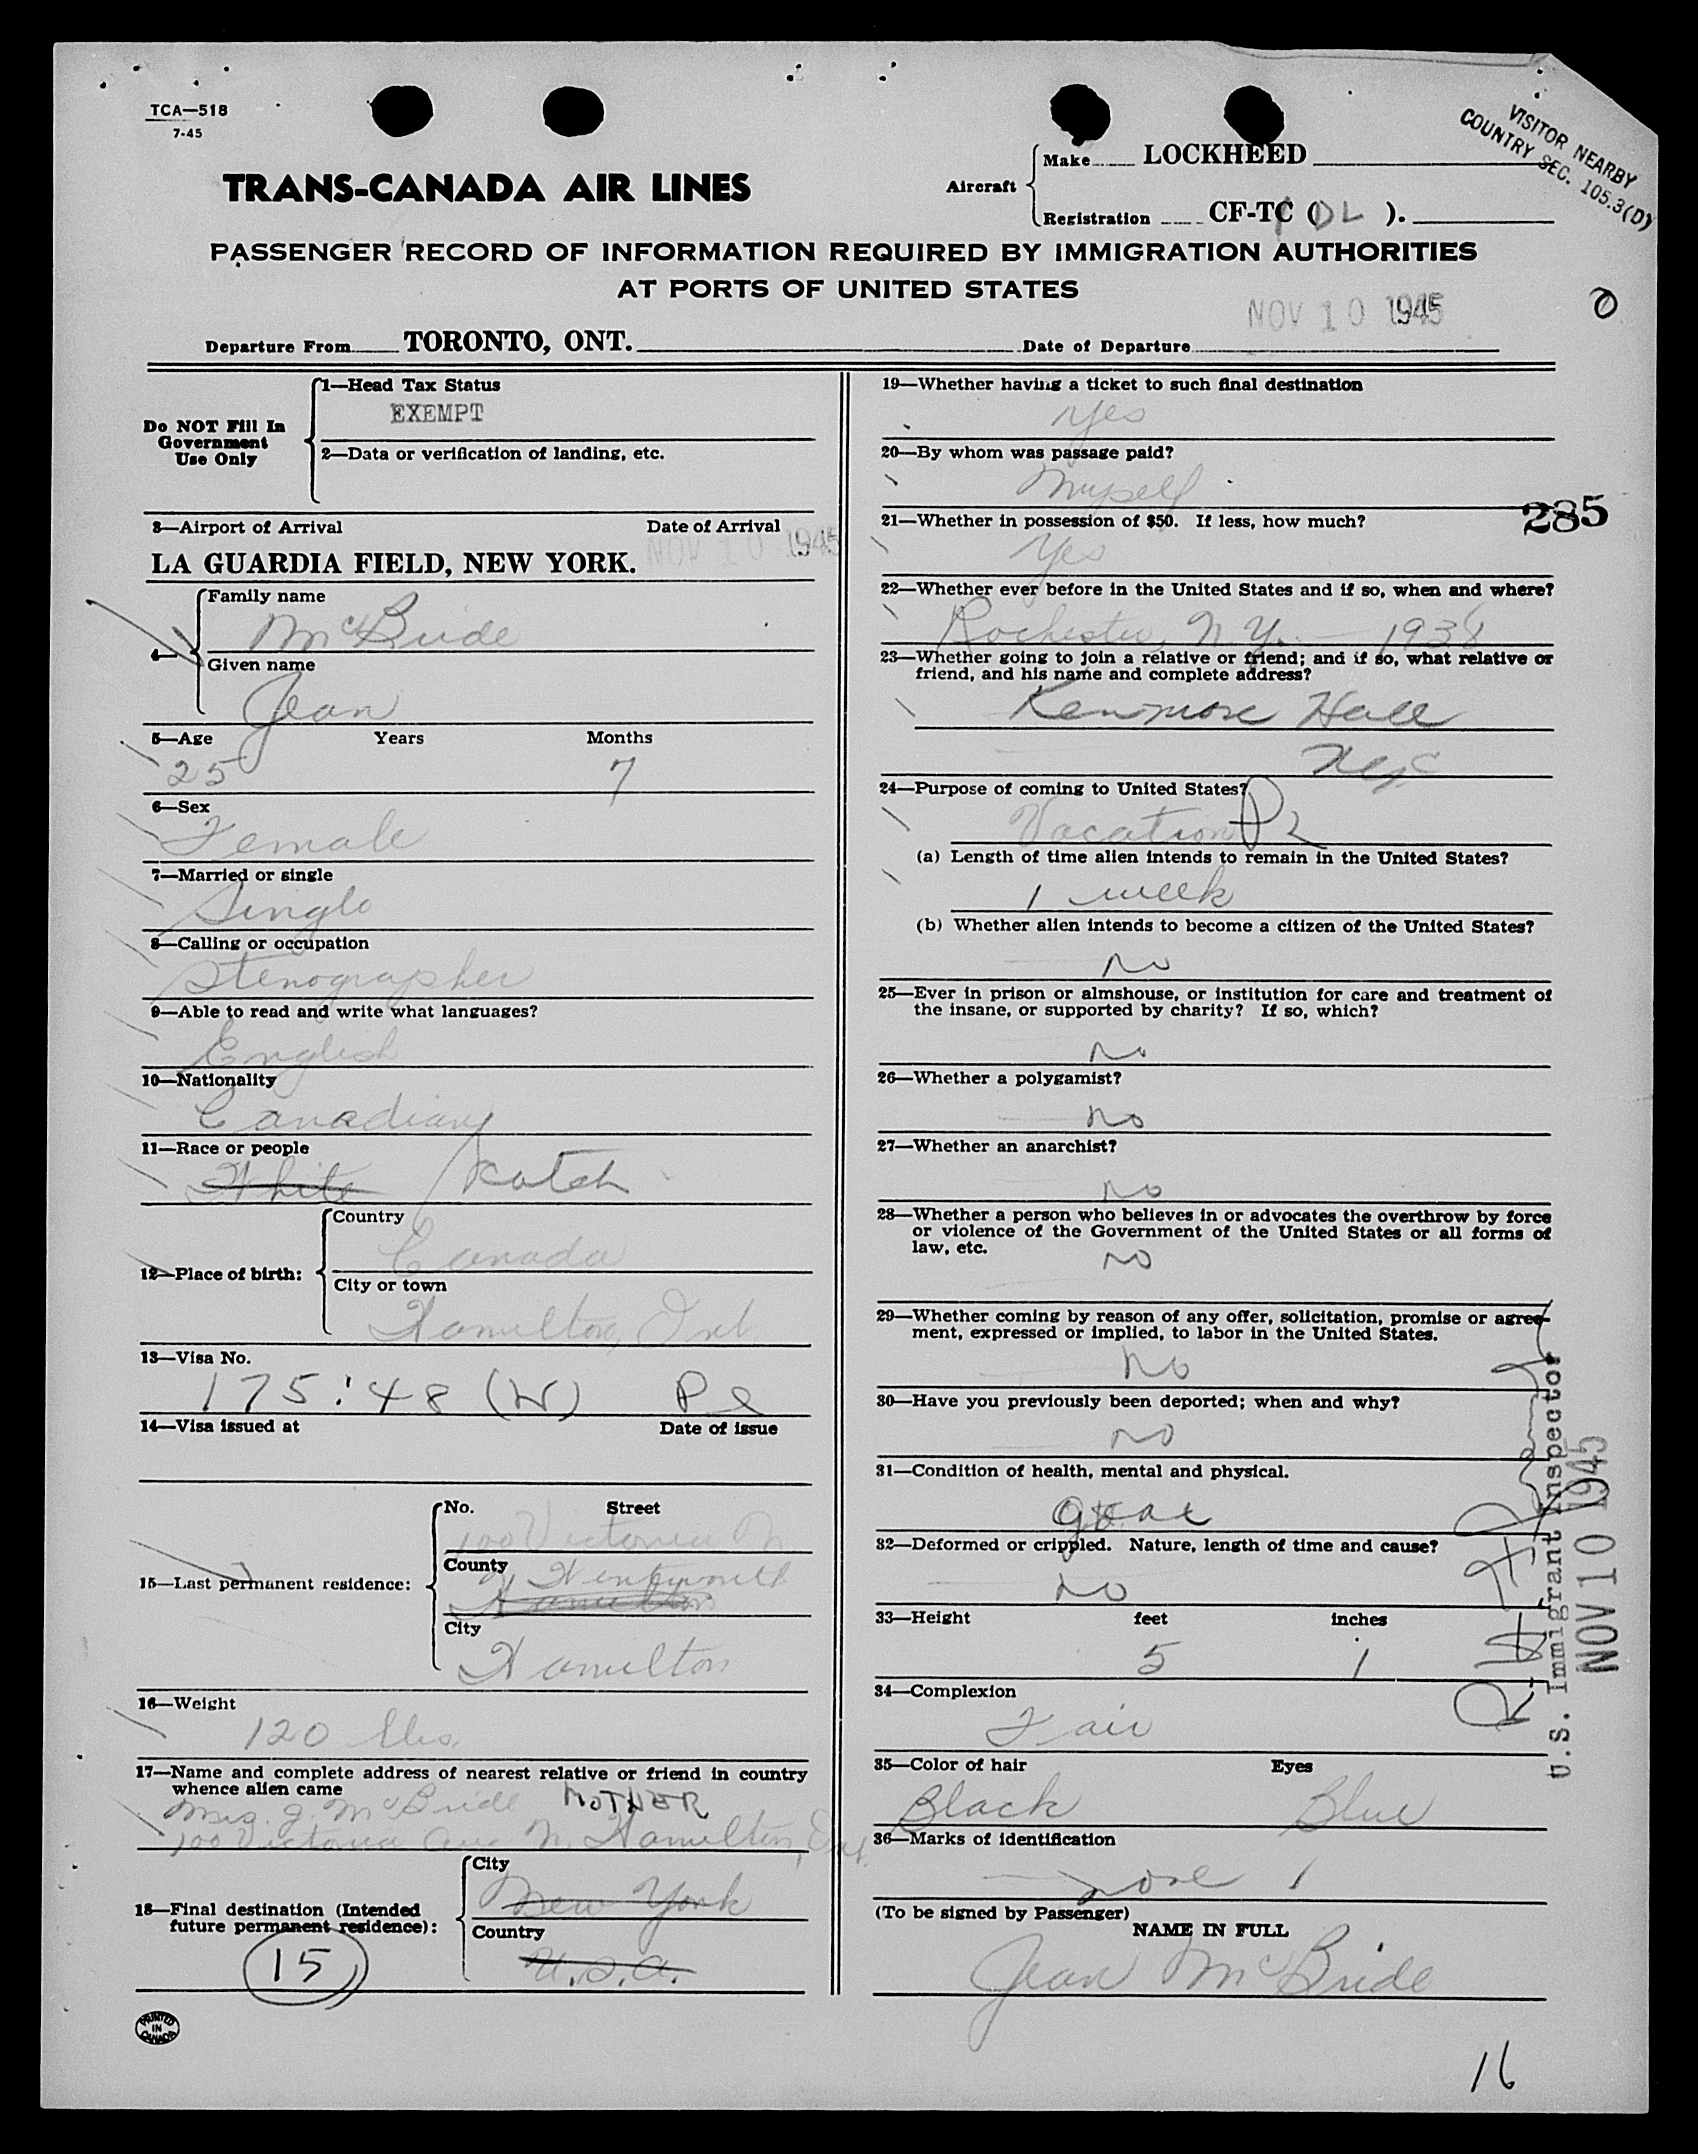 TCA—518
7-45
VISITOR NEARBY
COUNTRY SEC. 105.3(D)
TRANS-CANADA AIR LINES
Aircraft
Make LOCKHEED
Registration CF-TC (DL).
PASSENGER RECORD OF INFORMATION REQUIRED BY IMMIGRATION AUTHORITIES
AT PORTS OF UNITED STATES
NOV 10 1945
Departure From TORONTO, ONT. Date of Departure
Do NOT Fill In
Government
Use Only
1—Head Tax Status
EXEMPT
2—Data or verification of landing, etc.
3—Airport of Arrival Date of Arrival
LA GUARDIA FIELD, NEW YORK. NOV 10 1945
4—
Family name
McBride
Given name
Jean
5—Age Years Months
25 7
6—Sex
Female
7—Married or single
Single
8—Calling or occupation
Stenographer
9—Able to read and write what languages?
English
10—Nationality
Canadian
11—Race or people
White Scotch
12—Place of birth:
Country
Canada
City or town
Hamilton, Ont
13—Visa No.
175:48 (W)
14—Visa issued at Date of issue
15—Last permanent residence:
No. Street
100 Victoria N
County
Wentworth
Hamilton
City
Hamilton
16—Weight
120 lbs.
17—Name and complete address of nearest relative or friend in country
whence alien came
Mrs. J. McBride MOTHER
100 Victoria Ave N. Hamilton, Ont.
18—Final destination (Intended
future permanent residence):
15
City
New York
Country
U.S.A.
PRINTED
IN
CANADA
19—Whether having a ticket to such final destination
Yes
20—By whom was passage paid?
Myself
285
21—Whether in possession of $50. If less, how much?
Yes
22—Whether ever before in the United States and if so, when and where?
Rochester, N.Y. — 1938
23—Whether going to join a relative or friend; and if so, what relative or
friend, and his name and complete address?
Kenmore Hall
NYC
24—Purpose of coming to United States?
Vacation P2
(a) Length of time alien intends to remain in the United States?
1 week
(b) Whether alien intends to become a citizen of the United States?
No
25—Ever in prison or almshouse, or institution for care and treatment of
the insane, or supported by charity? If so, which?
No
26—Whether a polygamist?
No
27—Whether an anarchist?
No
28—Whether a person who believes in or advocates the overthrow by force
or violence of the Government of the United States or all forms of
law, etc.
No
29—Whether coming by reason of any offer, solicitation, promise or agree-
ment, expressed or implied, to labor in the United States.
No
30—Have you previously been deported; when and why?
No
31—Condition of health, mental and physical.
32—Deformed or crippled. Nature, length of time and cause?
No
33—Height feet inches
5 1
34—Complexion
Fair
35—Color of hair Eyes
Black Blue
36—Marks of identification
none
(To be signed by Passenger)
NAME IN FULL
Jean McBride
U.S. Immigrant Inspector
NOV 10 1945
16